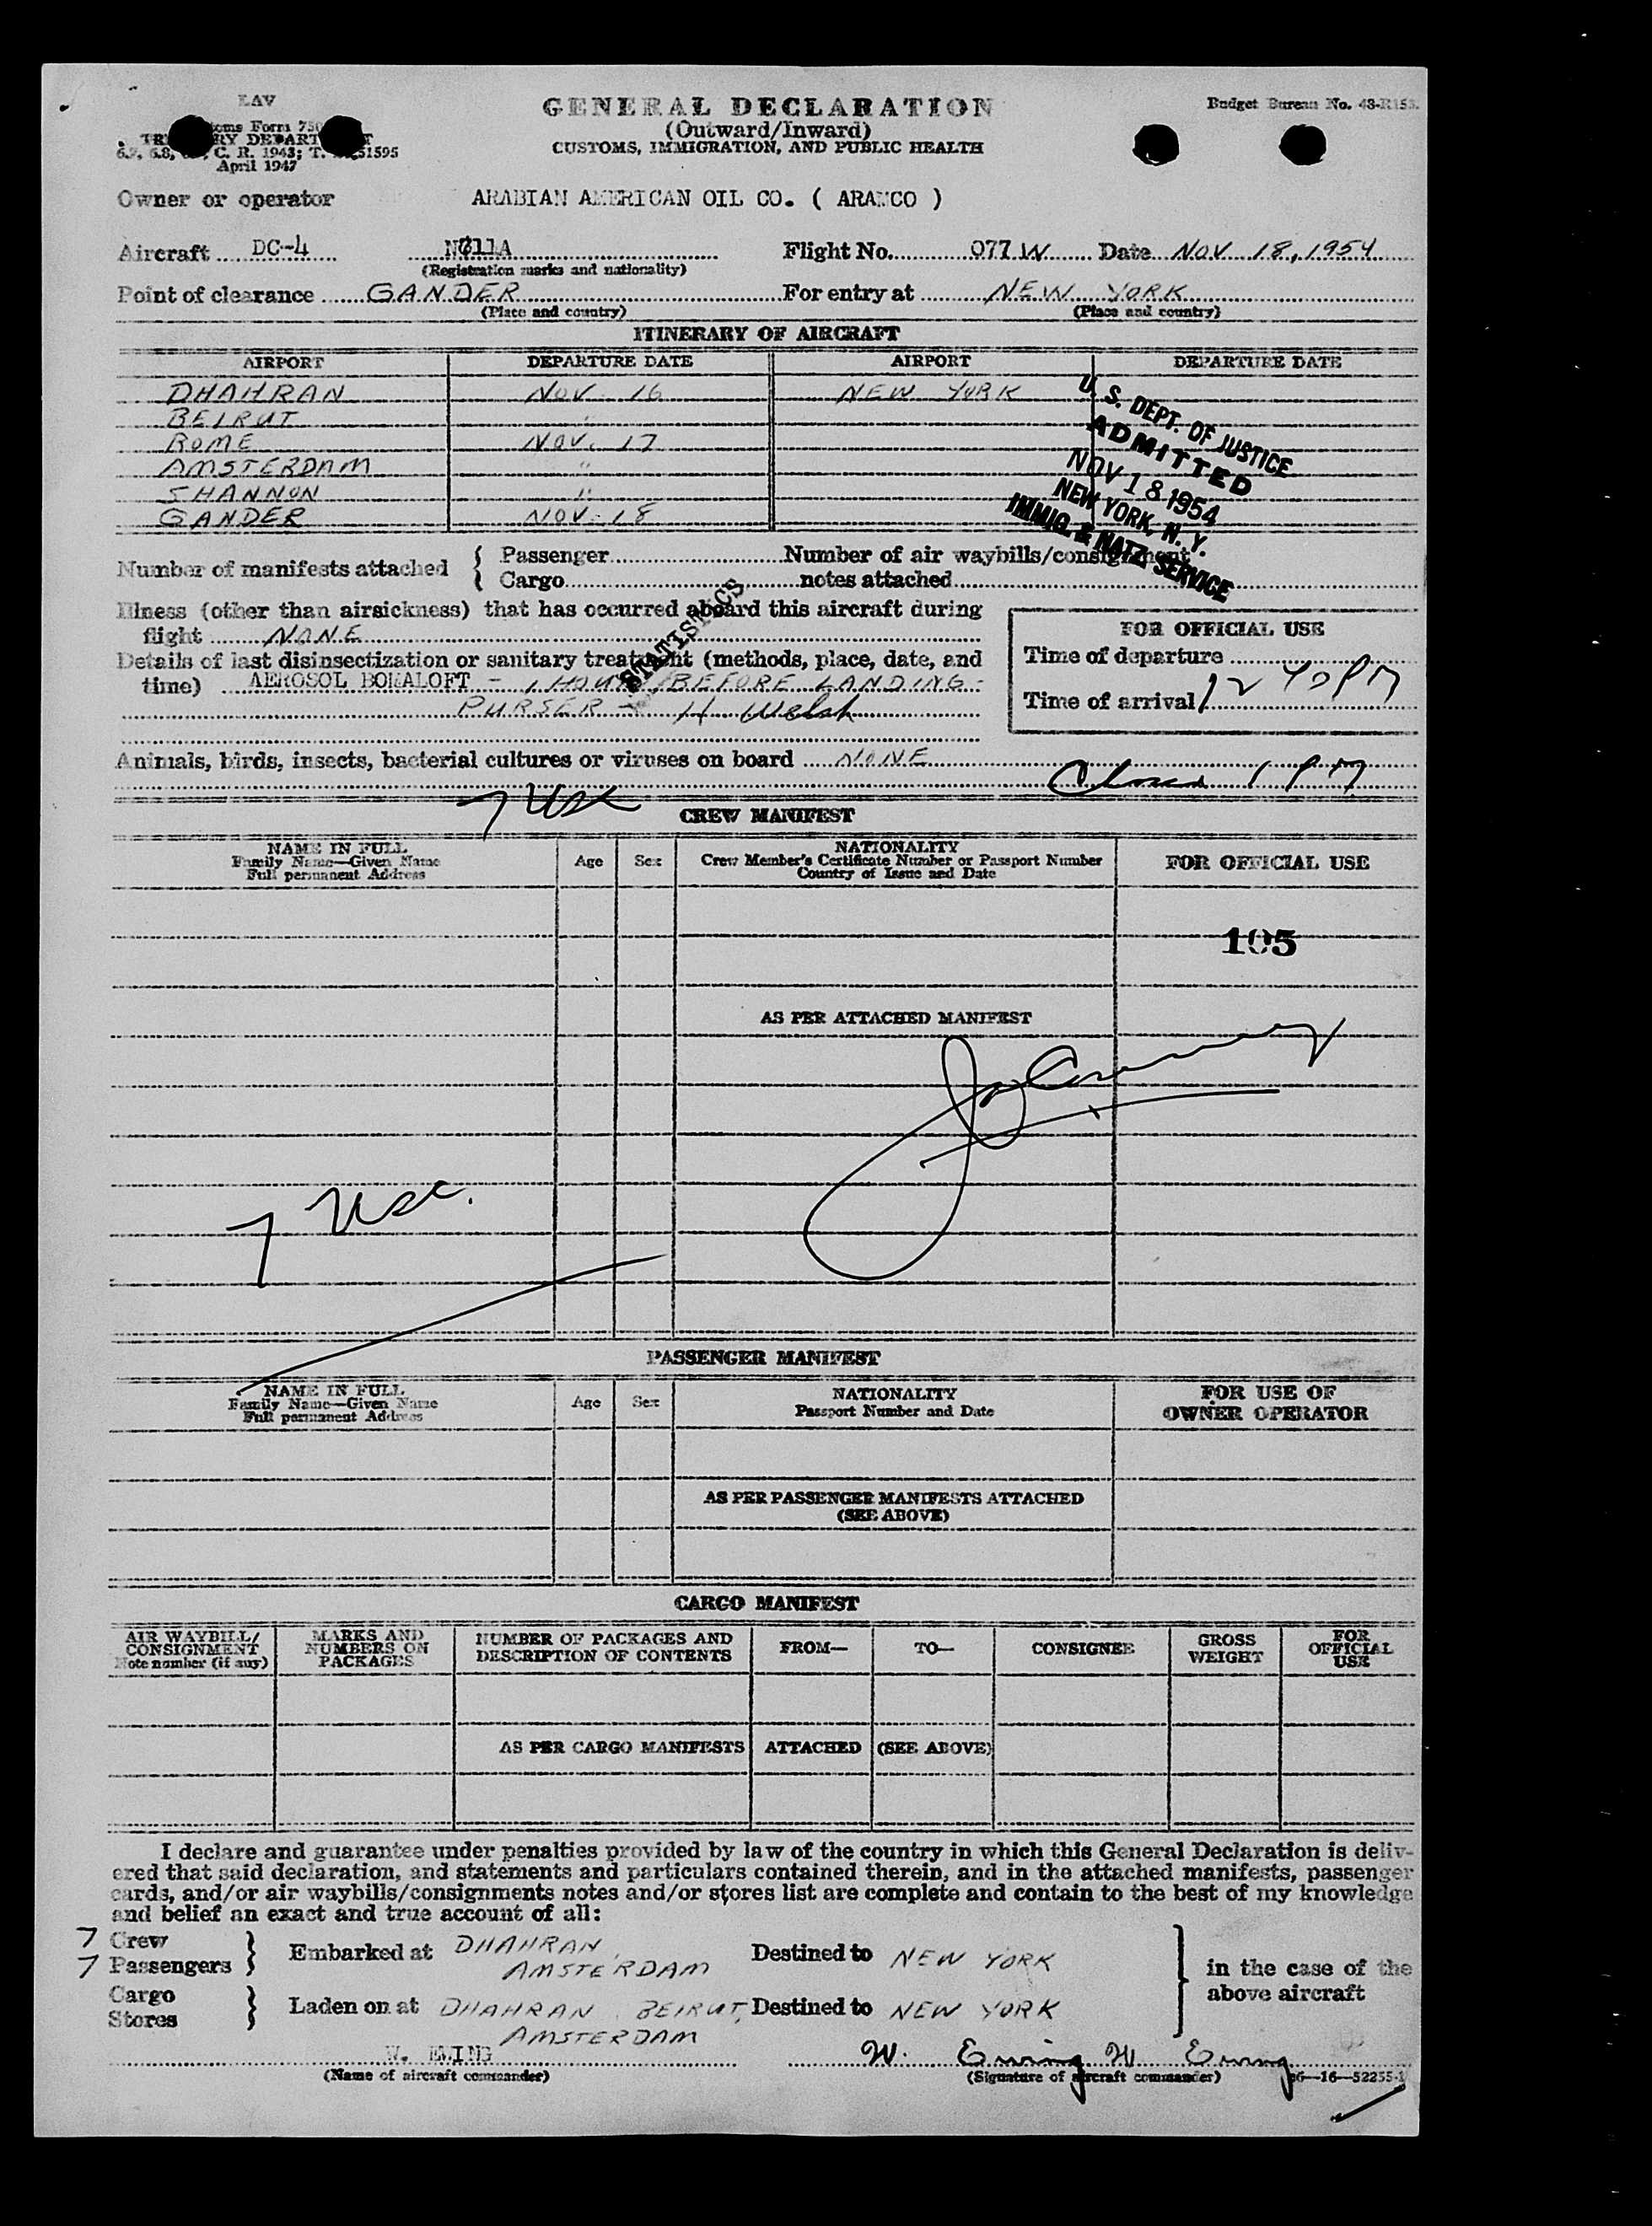 EAV
GENERAL DECLARATION
Budget Bureau No. 48-R153.
(Outward/Inward)
CUSTOMS, IMMIGRATION, AND PUBLIC HEALTH
Form 750
C. R. 1943; T. 51595
April 1947
Owner or operator ARABIAN AMERICAN OIL CO. ( ARAMCO )
Aircraft DC-4 Flight No. 077 W Date NOV 18, 1954
(Registration marks and nationality)
Point of clearance GANDER For entry at NEW YORK
(Place and country) (Place and country)
ITINERARY OF AIRCRAFT
AIRPORT DEPARTURE DATE AIRPORT DEPARTURE DATE
DHAHRAN NOV. 16 NEW YORK
BEIRUT "
ROME NOV. 17
AMSTERDAM "
SHANNON "
GANDER NOV. 18
U. S. DEPT. OF JUSTICE
ADMITTED
NOV 18 1954
NEW YORK, N. Y.
IMMIG. & NATZ SERVICE
Number of manifests attached { Passenger Number of air waybills/consignment
{ Cargo notes attached
STATISTICS
Illness (other than airsickness) that has occurred aboard this aircraft during
flight NONE
Details of last disinsectization or sanitary treatment (methods, place, date, and
time) AEROSOL - 1 HOUR BEFORE LANDING -
PURSER - H Welsh
FOR OFFICIAL USE
Time of departure
Time of arrival 12 40 PM
Animals, birds, insects, bacterial cultures or viruses on board NONE
1 PM
7 USC
CREW MANIFEST
NAME IN FULL
Family Name—Given Name
Full permanent Address
Age Sex
NATIONALITY
Crew Member's Certificate Number or Passport Number
Country of Issue and Date
FOR OFFICIAL USE
105
AS PER ATTACHED MANIFEST
7 USC.
PASSENGER MANIFEST
NAME IN FULL
Family Name—Given Name
Full permanent Address
Age Sex
NATIONALITY
Passport Number and Date
FOR USE OF
OWNER OPERATOR
AS PER PASSENGER MANIFESTS ATTACHED
(SEE ABOVE)
CARGO MANIFEST
AIR WAYBILL/
CONSIGNMENT
Note number (if any)
MARKS AND
NUMBERS ON
PACKAGES
NUMBER OF PACKAGES AND
DESCRIPTION OF CONTENTS
FROM— TO— CONSIGNEE
GROSS
WEIGHT
FOR
OFFICIAL
USE
AS PER CARGO MANIFESTS ATTACHED (SEE ABOVE)
I declare and guarantee under penalties provided by law of the country in which this General Declaration is deliv-
ered that said declaration, and statements and particulars contained therein, and in the attached manifests, passenger
cards, and/or air waybills/consignments notes and/or stores list are complete and contain to the best of my knowledge
and belief an exact and true account of all:
7 Crew
7 Passengers } Embarked at DHAHRAN, AMSTERDAM Destined to NEW YORK
Cargo
Stores } Laden on at DHAHRAN, BEIRUT, AMSTERDAM Destined to NEW YORK
} in the case of the
above aircraft
W. EWING W. Ewing W Ewing
(Name of aircraft commander) (Signature of aircraft commander) 16—52255-1